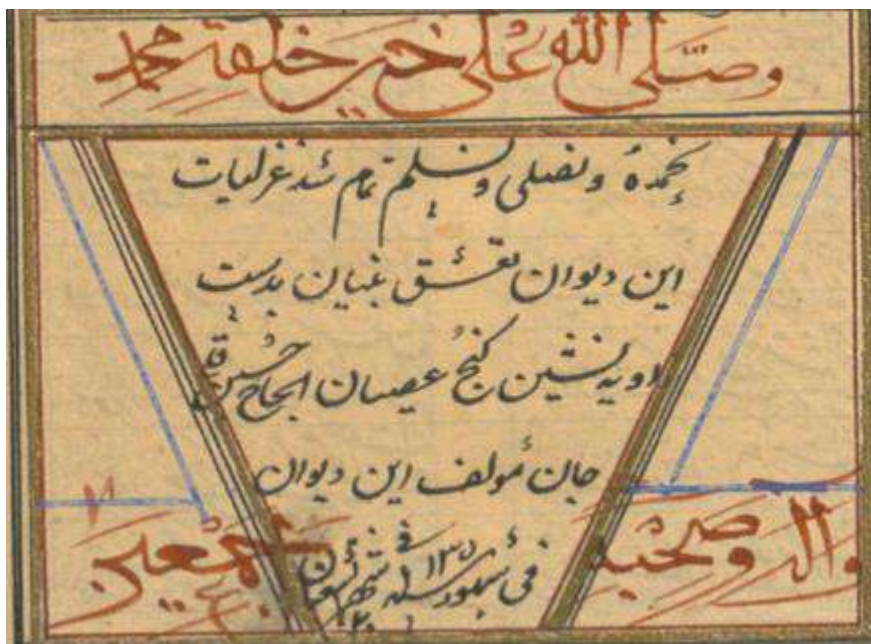 وصلى الله على خير خلقه محمد
نحمدهُ و نصلی و نسلم تمام شد غزلیات
این دیوان تعشق بنیان بدست
زاویه نشین کنج عصیان الحاج حسین قلی
خان مؤلف این دیوان
فی شهور سنه ۱۲۵ فی شهر شعبان
واله وصحبه اجمعین